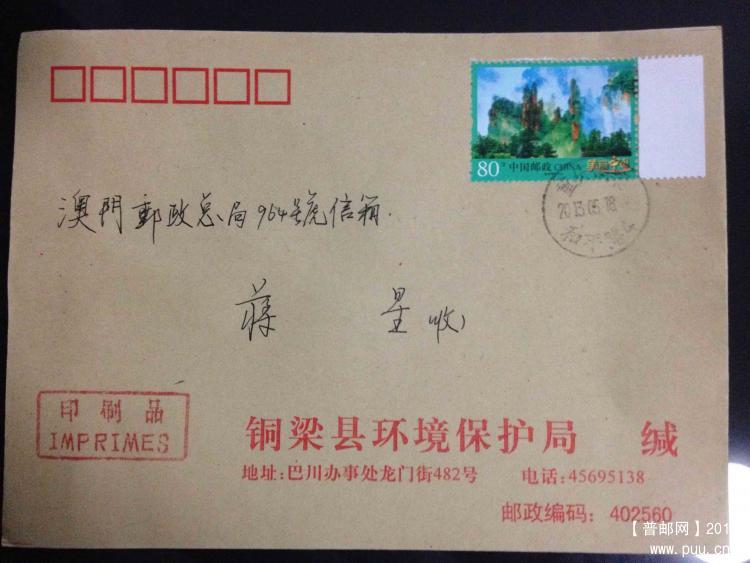 80分 中国邮政 CHINA 美丽中国
2013.05.18
澳門郵政总局964号信箱.
蒋 星 收
印刷品
IMPRIMES
铜梁县环境保护局 缄
地址:巴川办事处龙门街482号 电话:45695138
邮政编码: 402560
【普邮网】201
www.puu.cn